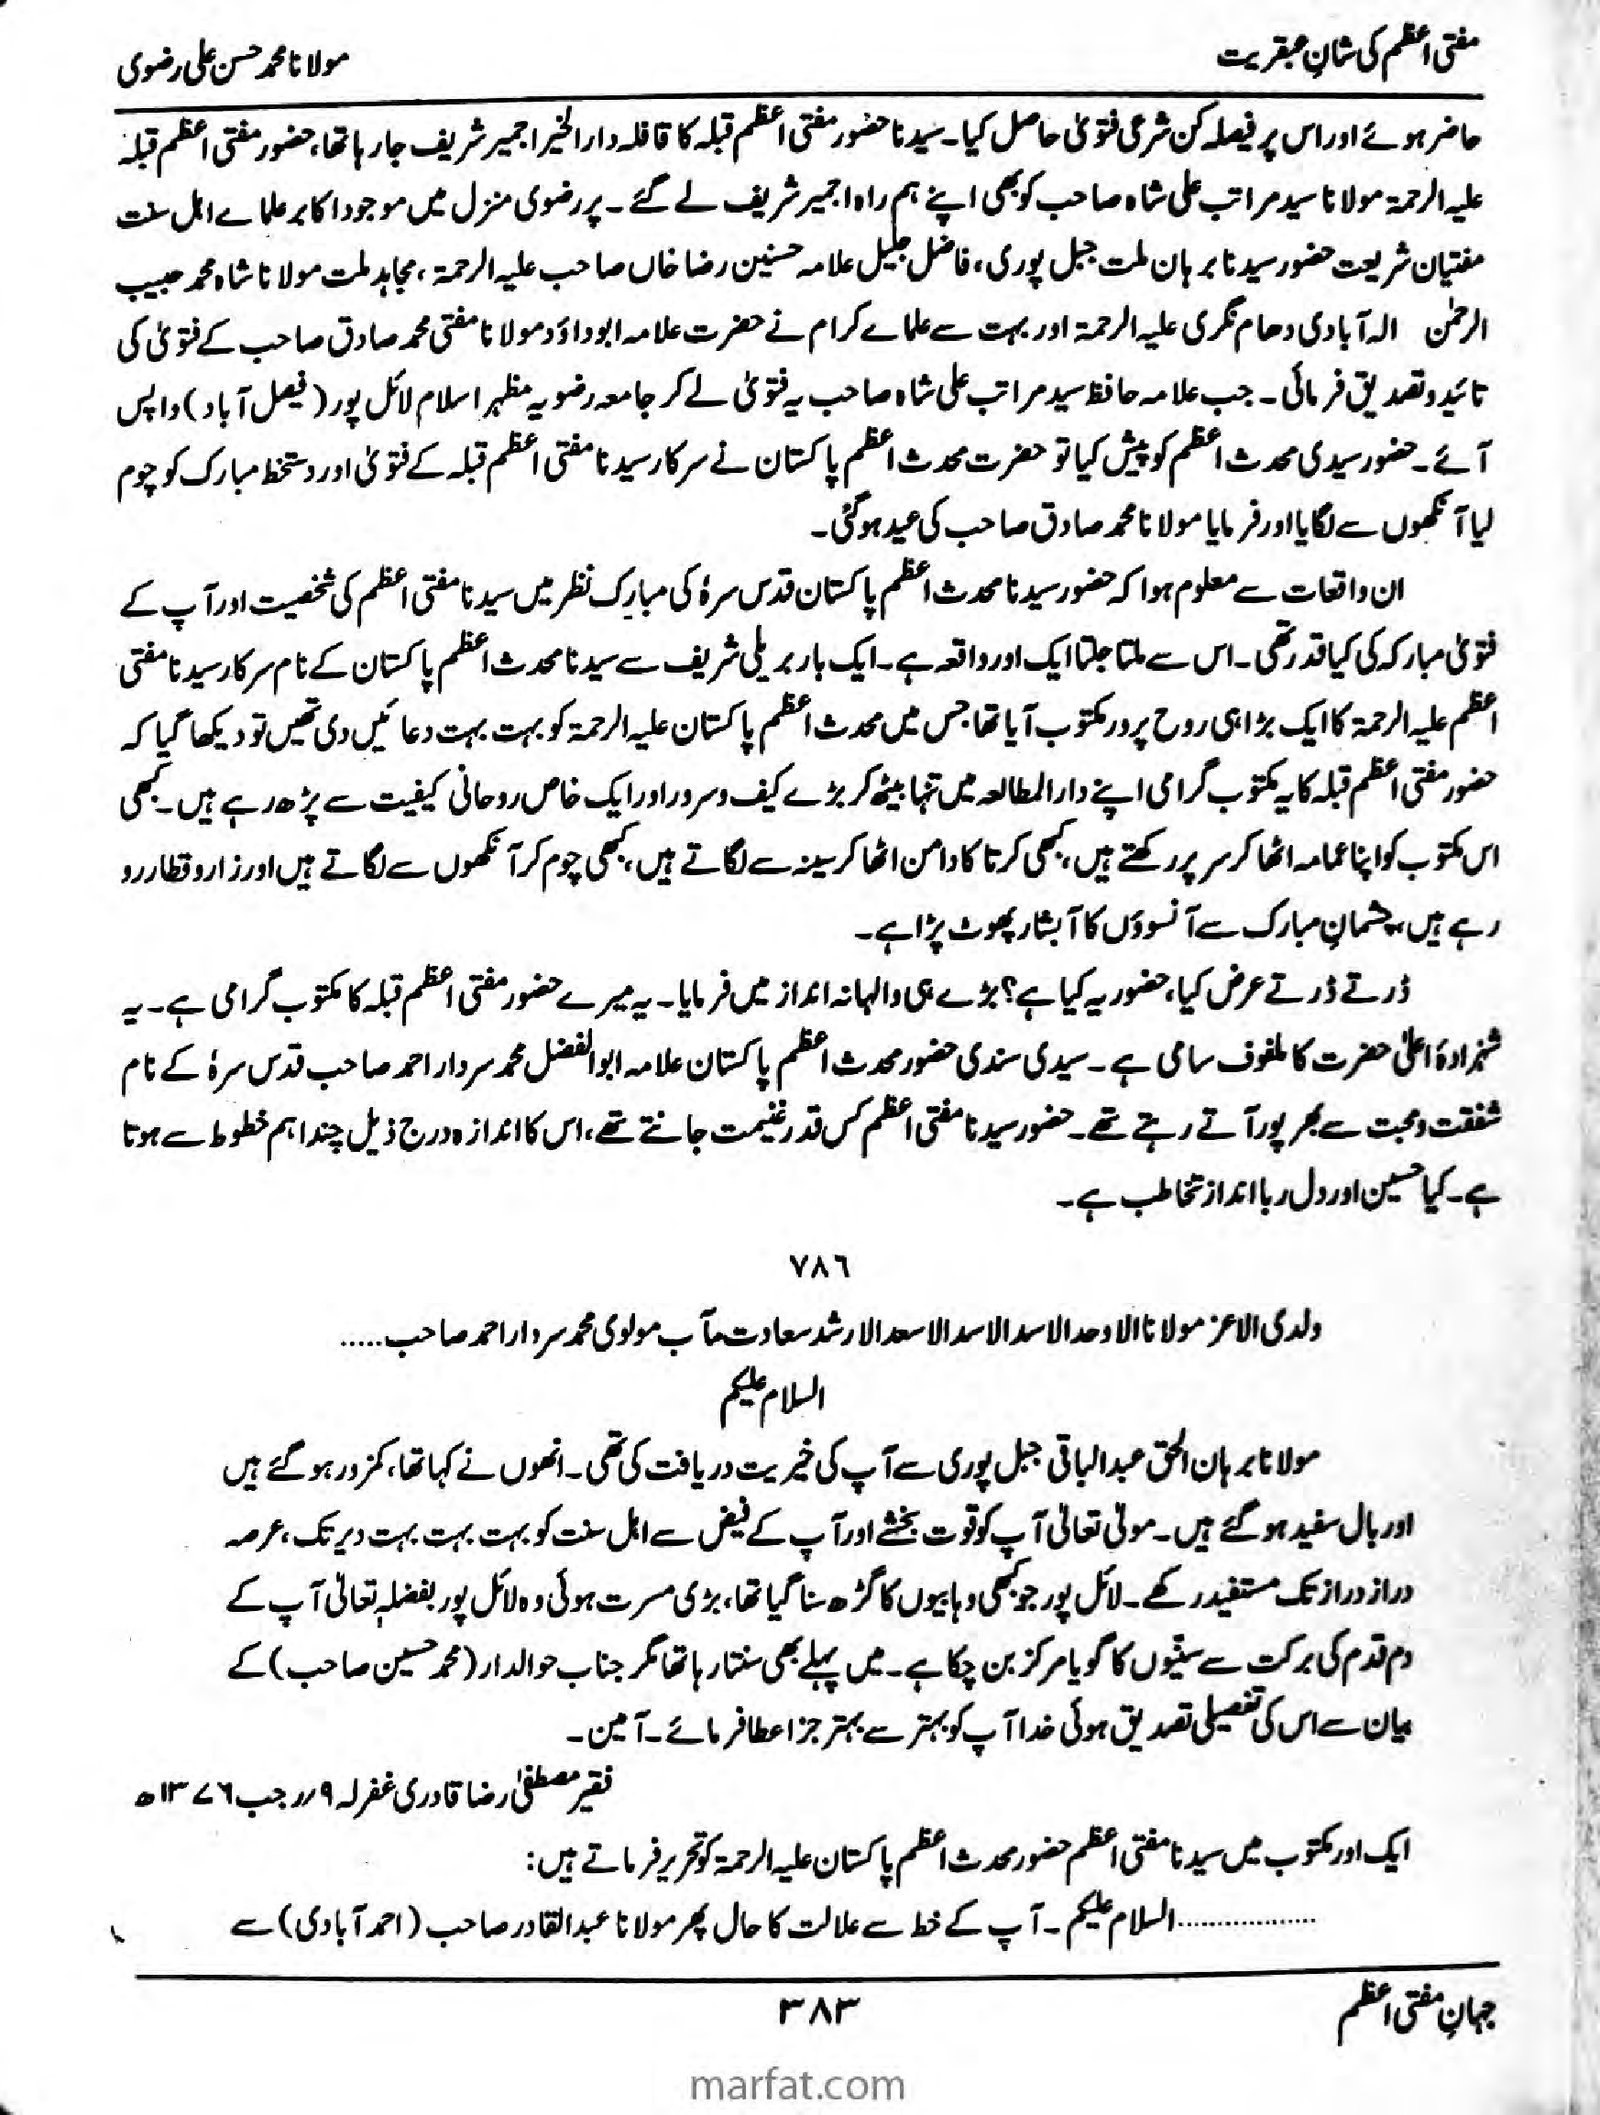 مفتی اعظم کی شانِ عبقریت
مولانا محمد حسن علی رضوی
حاضر ہوئے اور اس پر فیصلہ کن شرعی فتویٰ حاصل کیا۔ سیدنا حضور مفتی اعظم قبلہ کا قافلہ دار الخیر اجمیر شریف جا رہا تھا، حضور مفتی اعظم قبلہ
علیہ الرحمۃ مولانا سید مراتب علی شاہ صاحب کو بھی اپنے ہم راہ اجمیر شریف لے گئے۔ پر رضوی منزل میں موجود اکابر علماے اہل سنت
مفتیان شریعت حضور سیدنا برہان ملت جبل پوری، فاضل جلیل علامہ حسنین رضا خاں صاحب علیہ الرحمۃ، مجاہد ملت مولانا شاہ محمد حبیب
الرحمٰن الہ آبادی دھام نگری علیہ الرحمۃ اور بہت سے علماے کرام نے حضرت علامہ ابوداؤد مولانا مفتی محمد صادق صاحب کے فتویٰ کی
تائید و تصدیق فرمائی۔ جب علامہ حافظ سید مراتب علی شاہ صاحب یہ فتویٰ لے کر جامعہ رضویہ مظہر اسلام لائل پور (فیصل آباد) واپس
آئے۔ حضور سیدی محدث اعظم کو پیش کیا تو حضرت محدث اعظم پاکستان نے سرکار سیدنا مفتی اعظم قبلہ کے فتویٰ اور دستخط مبارک کو چوم
لیا آنکھوں سے لگایا اور فرمایا مولانا محمد صادق صاحب کی عید ہوگئی۔
ان واقعات سے معلوم ہوا کہ حضور سیدنا محدث اعظم پاکستان قدس سرہٗ کی مبارک نظر میں سیدنا مفتی اعظم کی شخصیت اور آپ کے
فتویٰ مبارکہ کی کیا قدر تھی۔ اس سے ملتا جلتا ایک اور واقعہ ہے۔ ایک بار بریلی شریف سے سیدنا محدث اعظم پاکستان کے نام سرکار سیدنا مفتی
اعظم علیہ الرحمۃ کا ایک بڑا ہی روح پرور مکتوب آیا تھا جس میں محدث اعظم پاکستان علیہ الرحمۃ کو بہت بہت دعائیں دی تھیں تو دیکھا گیا کہ
حضور مفتی اعظم قبلہ کا یہ مکتوب گرامی اپنے دار المطالعہ میں تنہا بیٹھ کر بڑے کیف و سرور اور ایک خاص روحانی کیفیت سے پڑھ رہے ہیں۔ کبھی
اس مکتوب کو اپنا عمامہ اٹھا کر سر پر رکھتے ہیں، کبھی کرتا کا دامن اٹھا کر سینہ سے لگاتے ہیں، کبھی چوم کر آنکھوں سے لگاتے ہیں اور زار و قطار رو
رہے ہیں، چشمانِ مبارک سے آنسوؤں کا آبشار پھوٹ پڑا ہے۔
ڈرتے ڈرتے عرض کیا، حضور یہ کیا ہے؟ بڑے ہی والہانہ انداز میں فرمایا۔ یہ میرے حضور مفتی اعظم قبلہ کا مکتوب گرامی ہے۔ یہ
شہزادۂ اعلیٰ حضرت کا ملفوف سامی ہے۔ سیدی سندی حضور محدث اعظم پاکستان علامہ ابوالفضل محمد سردار احمد صاحب قدس سرہٗ کے نام
شفقت و محبت سے بھر پور آتے رہتے تھے۔ حضور سیدنا مفتی اعظم کس قدر غنیمت جانتے تھے، اس کا اندازہ درج ذیل چند اہم خطوط سے ہوتا
ہے۔ کیا حسین اور دل ربا انداز تخاطب ہے۔
۷۸۶
ولدی الاعز مولانا الاوحد الاسد الاسد الاسعد الارشد سعادت مآب مولوی محمد سردار احمد صاحب.....
السلام علیکم
مولانا برہان الحق عبد الباقی جبل پوری سے آپ کی خیریت دریافت کی تھی۔ انھوں نے کہا تھا، کمزور ہو گئے ہیں
اور بال سفید ہو گئے ہیں۔ مولیٰ تعالیٰ آپ کو قوت بخشے اور آپ کے فیض سے اہل سنت کو بہت بہت بہت دیر تک، عرصہ
دراز دراز تک مستفید رکھے۔ لائل پور جو کبھی وہابیوں کا گڑھ سنا گیا تھا، بڑی مسرت ہوئی وہ لائل پور بفضلہٖ تعالیٰ آپ کے
دم قدم کی برکت سے سنّیوں کا گویا مرکز بن چکا ہے۔ میں پہلے بھی سنتا رہا تھا مگر جناب حوالدار (محمد حسین صاحب) کے
بیان سے اس کی تفصیلی تصدیق ہوئی خدا آپ کو بہتر سے بہتر جزا عطا فرمائے۔ آمین۔
فقیر مصطفیٰ رضا قادری غفرلہ ۹؍ رجب ۱۳۷۶ھ
ایک اور مکتوب میں سیدنا مفتی اعظم حضور محدث اعظم پاکستان علیہ الرحمۃ کو تحریر فرماتے ہیں:
..................السلام علیکم۔ آپ کے خط سے علالت کا حال پھر مولانا عبد القادر صاحب (احمد آبادی) سے
جہانِ مفتی اعظم
۳۸۳
marfat.com